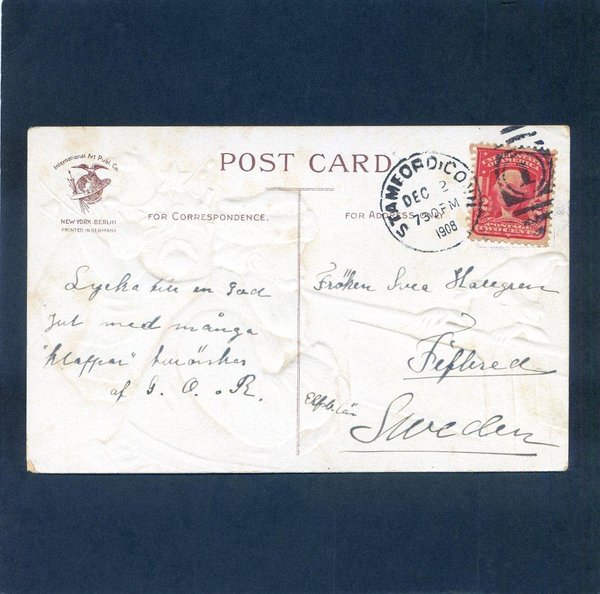 International Art Publ. Co.
NEW YORK BERLIN
PRINTED IN GERMANY
POST CARD
FOR CORRESPONDENCE.
FOR ADDRESS ONLY.
STAMFORD, CONN.
DEC 2
730 PM
1908
POSTAGE
TWO CENTS
Lycka till en God
Jul med många
"klappar" tillönskas
af G. O. o R.
Fröken Svea Hallgren
Sweden